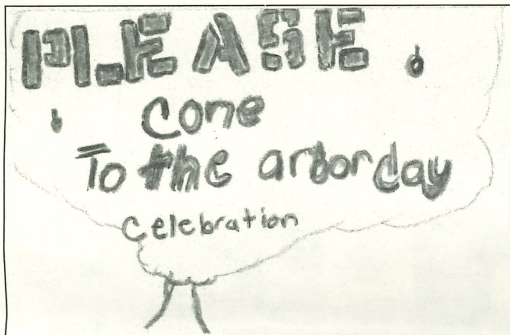 PLEASE
Come
To the arbor day
Celebration